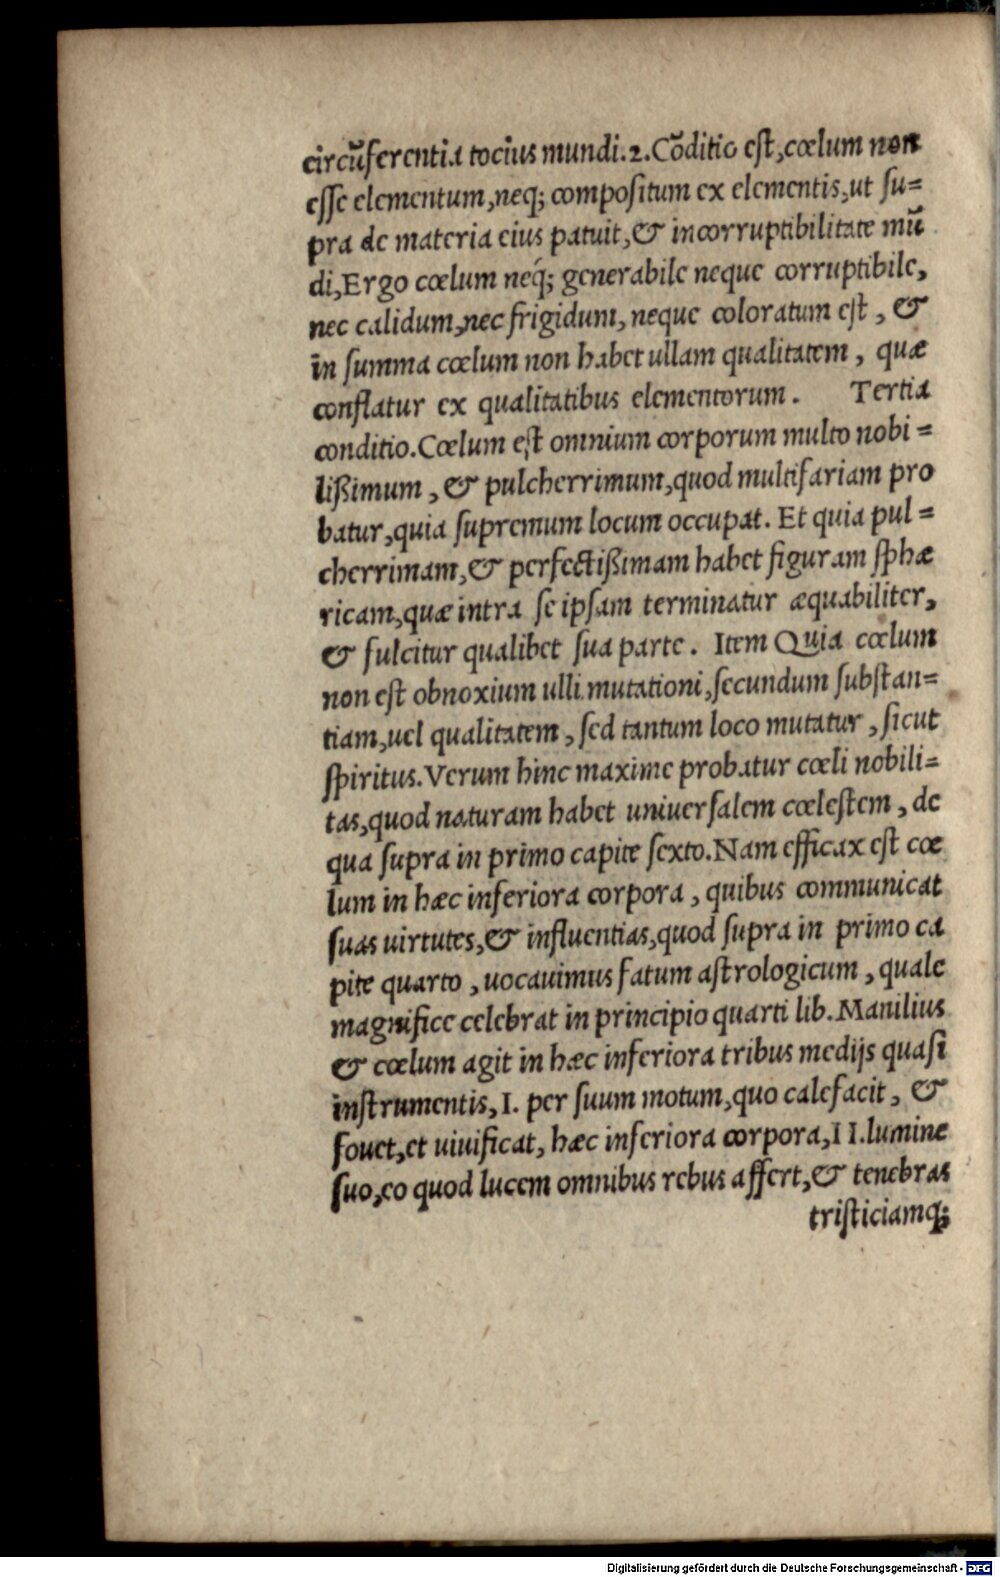 circũferentia tocius mundi.2.Cõditio est,cœlum non
esse elementum,neq; compositum ex elementis,ut su=
pra de materia eius patuit,& incorruptibilitate mũ
di,Ergo cœlum neq́; generabile neque corruptibile,
nec calidum,nec frigidum, neque coloratum est , &
in summa cœlum non habet ullam qualitatem , quæ
conflatur ex qualitatibus elementorum . Tertia
conditio.Cœlum est omnium corporum multo nobi=
lißimum , & pulcherrimum,quod multifariam pro
batur,quia supremum locum occupat. Et quia pul=
cherrimam,& perfectißimam habet figuram sphæ
ricam,quæ intra se ipsam terminatur æquabiliter,
& fulcitur qualibet sua parte . Item Quia cœlum
non est obnoxium ulli mutationi,secundum substan=
tiam,uel qualitatem , sed tantum loco mutatur , sicut
spiritus.Verum hinc maxime probatur cœli nobili=
tas,quod naturam habet uniuersalem cœlestem , de
qua supra in primo capite sexto.Nam efficax est cœ
lum in hæc inferiora corpora , quibus communicat
suas uirtutes,& influentias,quod supra in primo ca
pite quarto , uocauimus fatum astrologicum , quale
magnifice celebrat in principio quarti lib. Manilius
& cœlum agit in hæc inferiora tribus medijs quasi
instrumentis, I. per suum motum,quo calefacit , &
fouet,et uiuificat, hæc inferiora corpora,II.lumine
suo,eo quod lucem omnibus rebus affert,& tenebras
tristiciamq;
Digitalisierung gefördert durch die Deutsche Forschungsgemeinschaft - DFG